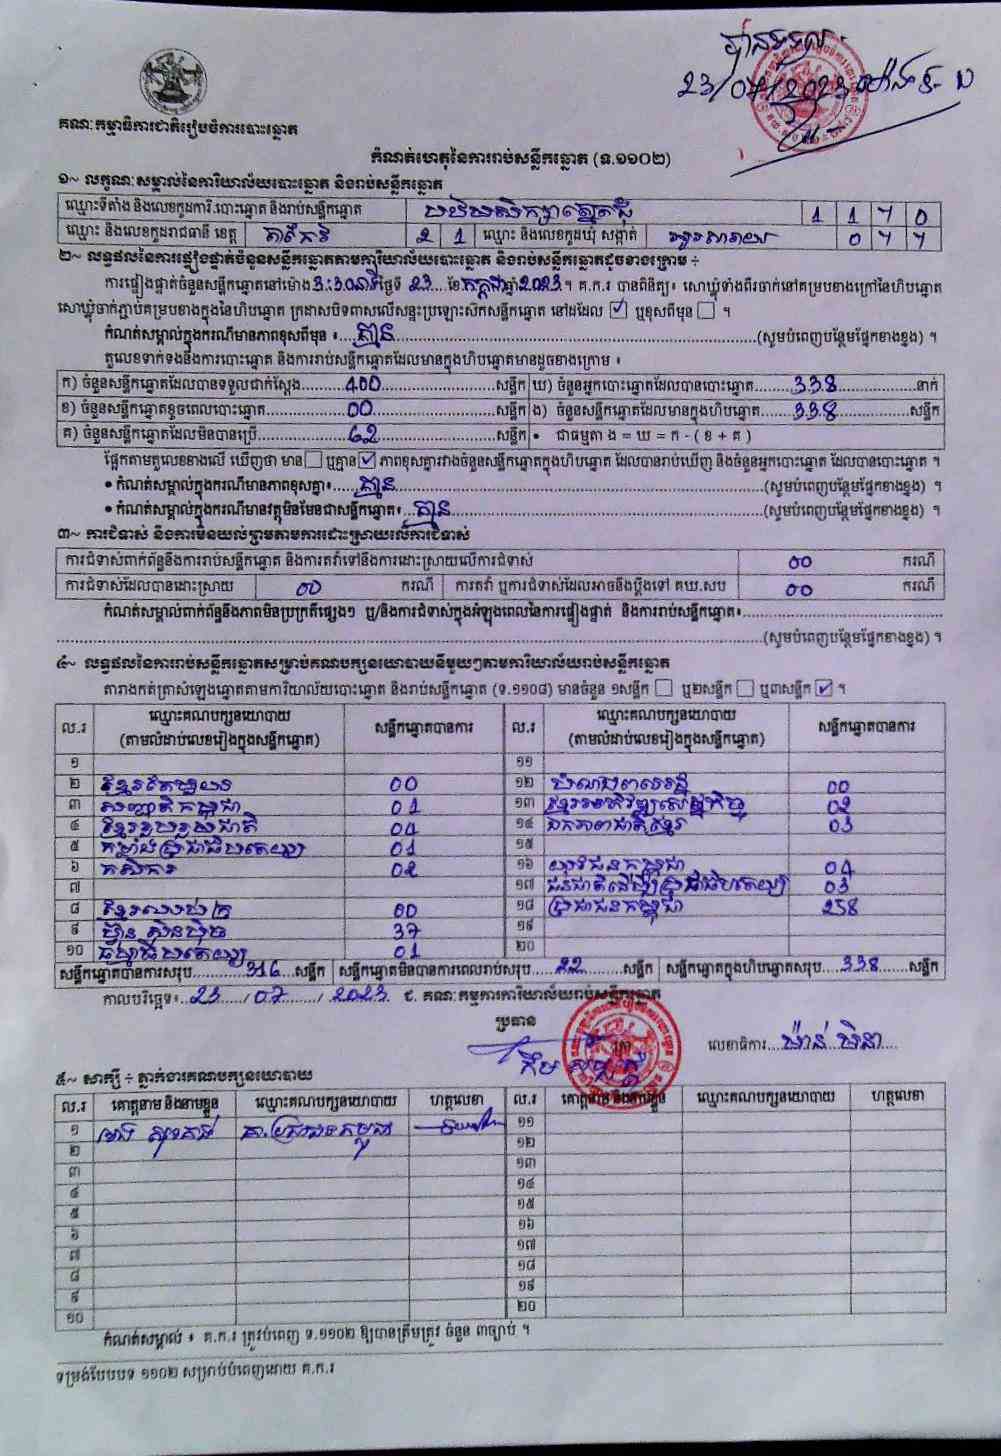 បានទទួល
23/07/2023
គណៈកម្មាធិការជាតិរៀបចំការបោះឆ្នោត
កំណត់ហេតុនៃការរាប់សន្លឹកឆ្នោត (ទ.១១០២)
១~ លក្ខណៈសម្គាល់នៃការិយាល័យបោះឆ្នោត និងរាប់សន្លឹកឆ្នោត
ឈ្មោះទីតាំង និងលេខកូដការិ.បោះឆ្នោត និងរាប់សន្លឹកឆ្នោត 1 1 7 0
ឈ្មោះ និងលេខកូដរាជធានី ខេត្ត តាកែវ 2 1 ឈ្មោះ និងលេខកូដឃុំ សង្កាត់ 0 7 7
២~ លទ្ធផលនៃការផ្ទៀងផ្ទាត់ចំនួនសន្លឹកឆ្នោតតាមការិយាល័យបោះឆ្នោត និងរាប់សន្លឹកឆ្នោតដូចខាងក្រោម ÷
ការផ្ទៀងផ្ទាត់ចំនួនសន្លឹកឆ្នោតនៅម៉ោង 3:30 នាទី ថ្ងៃទី 23 ខែ កក្កដា ឆ្នាំ 2023 ។ គ.ក.រ បានពិនិត្យ៖ សោឃ្លុំទាំងពីរចាក់នៅគម្របខាងក្រៅនៃហិបឆ្នោត
សោឃ្លុំចាក់ភ្ជាប់គម្របខាងក្នុងនៃហិបឆ្នោត ក្រដាសបិទពាសលើសន្ទះប្រឡោះសិកសន្លឹកឆ្នោត នៅដដែល ☑ ឬខុសពីមុន ☐ ។
កំណត់សម្គាល់ក្នុងករណីមានភាពខុសពីមុន ៖ គ្មាន (សូមបំពេញបន្ថែមផ្នែកខាងខ្នង) ។
តួលេខទាក់ទងនឹងការបោះឆ្នោត និងការរាប់សន្លឹកឆ្នោតដែលមានក្នុងហិបឆ្នោតមានដូចខាងក្រោម ៖
ក) ចំនួនសន្លឹកឆ្នោតដែលបានទទួលជាក់ស្តែង 400 សន្លឹក ឃ) ចំនួនអ្នកបោះឆ្នោតដែលបានបោះឆ្នោត 338 នាក់
ខ) ចំនួនសន្លឹកឆ្នោតខូចពេលបោះឆ្នោត 00 សន្លឹក ង) ចំនួនសន្លឹកឆ្នោតដែលមានក្នុងហិបឆ្នោត 338 សន្លឹក
គ) ចំនួនសន្លឹកឆ្នោតដែលមិនបានប្រើ 62 សន្លឹក • ជាធម្មតា ង = ឃ = ក - ( ខ + គ )
ផ្អែកតាមតួលេខខាងលើ ឃើញថា មាន ☐ ឬគ្មាន ☑ ភាពខុសគ្នារវាងចំនួនសន្លឹកឆ្នោតក្នុងហិបឆ្នោត ដែលបានរាប់ឃើញ និងចំនួនអ្នកបោះឆ្នោត ដែលបានបោះឆ្នោត ។
• កំណត់សម្គាល់ក្នុងករណីមានភាពខុសគ្នា៖ គ្មាន (សូមបំពេញបន្ថែមផ្នែកខាងខ្នង) ។
• កំណត់សម្គាល់ក្នុងករណីមានវត្ថុមិនមែនជាសន្លឹកឆ្នោត៖ គ្មាន (សូមបំពេញបន្ថែមផ្នែកខាងខ្នង) ។
៣~ ការជំទាស់ និងការមិនយល់ព្រមតាមការដោះស្រាយលើការជំទាស់
ការជំទាស់ពាក់ព័ន្ធនឹងការរាប់សន្លឹកឆ្នោត និងការតវ៉ាទៅនឹងការដោះស្រាយលើការជំទាស់ 00 ករណី
ការជំទាស់ដែលបានដោះស្រាយ 00 ករណី ការតវ៉ា ឬការជំទាស់ដែលអាចនឹងប្តឹងទៅ គឃ.សប 00 ករណី
កំណត់សម្គាល់ពាក់ព័ន្ធនឹងភាពមិនប្រក្រតីផ្សេងៗ ឬ/និងការជំទាស់ក្នុងអំឡុងពេលនៃការផ្ទៀងផ្ទាត់ និងការរាប់សន្លឹកឆ្នោត៖
(សូមបំពេញបន្ថែមផ្នែកខាងខ្នង) ។
៤~ លទ្ធផលនៃការរាប់សន្លឹកឆ្នោតសម្រាប់គណបក្សនយោបាយនីមួយៗតាមការិយាល័យរាប់សន្លឹកឆ្នោត
តារាងកត់ត្រាសំឡេងឆ្នោតតាមការិយាល័យបោះឆ្នោត និងរាប់សន្លឹកឆ្នោត (ទ.១១០៨) មានចំនួន ១សន្លឹក ☐ ឬ២សន្លឹក ☐ ឬ៣សន្លឹក ☑ ។
ល.រ ឈ្មោះគណបក្សនយោបាយ សន្លឹកឆ្នោតបានការ ល.រ ឈ្មោះគណបក្សនយោបាយ សន្លឹកឆ្នោតបានការ
(តាមលំដាប់លេខរៀងក្នុងសន្លឹកឆ្នោត) (តាមលំដាប់លេខរៀងក្នុងសន្លឹកឆ្នោត)
១ ១១
២ 00 ១២ 00
៣ សញ្ជាតិកម្ពុជា 01 ១៣ ខ្មែរអភិវឌ្ឍសេដ្ឋកិច្ច 02
៤ ខ្មែររួបរួមជាតិ 04 ១៤ ឯកភាពជាតិខ្មែរ 03
៥ កម្លាំងប្រជាធិបតេយ្យ 01 ១៥
៦ កសិករ 02 ១៦ យុវជនកម្ពុជា 04
៧ ១៧ ជនជាតិដើមប្រជាធិបតេយ្យ 03
៨ 00 ១៨ ប្រជាជនកម្ពុជា 258
៩ ហ៊្វុនស៊ិនប៉ិច 37 ១៩
១០ ធម្មាធិបតេយ្យ 01 ២០
សន្លឹកឆ្នោតបានការសរុប 316 សន្លឹក សន្លឹកឆ្នោតមិនបានការពេលរាប់សរុប 22 សន្លឹក សន្លឹកឆ្នោតក្នុងហិបឆ្នោតសរុប 338 សន្លឹក
កាលបរិច្ឆេទ៖ 23 / 07 / 2023 ជ. គណៈកម្មការការិយាល័យរាប់សន្លឹកឆ្នោត
ប្រធាន
លេខាធិការ
៥~ សាក្សី ÷ ភ្នាក់ងារគណបក្សនយោបាយ
ល.រ គោត្តនាម និងនាមខ្លួន ឈ្មោះគណបក្សនយោបាយ ហត្ថលេខា ល.រ គោត្តនាម និងនាមខ្លួន ឈ្មោះគណបក្សនយោបាយ ហត្ថលេខា
១ គ.ប្រជាជនកម្ពុជា ១១
២ ១២
៣ ១៣
៤ ១៤
៥ ១៥
៦ ១៦
៧ ១៧
៨ ១៨
៩ ១៩
១០ ២០
កំណត់សម្គាល់ ៖ គ.ក.រ ត្រូវបំពេញ ទ.១១០២ ឱ្យបានត្រឹមត្រូវ ចំនួន ៣ច្បាប់ ។
ទម្រង់បែបបទ ១១០២ សម្រាប់បំពេញដោយ គ.ក.រ